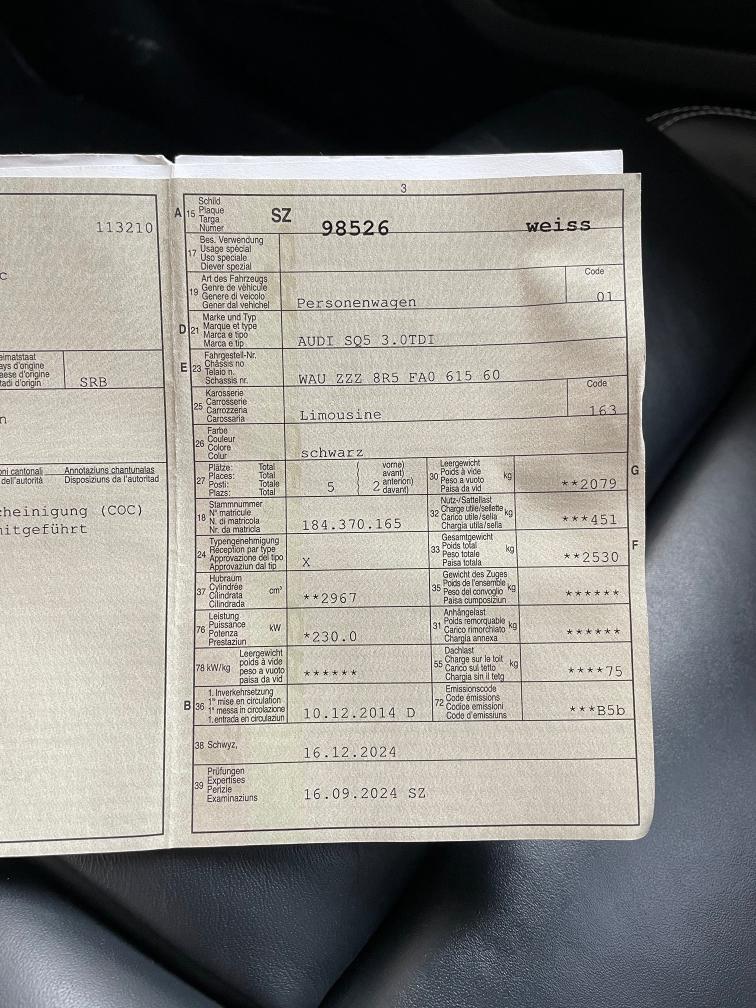 3
113210
c
eimatstaat
ays d'origine
aese d'origine
tadi d'origin
SRB
n
oni cantonali
dell'autorità
Annotaziuns chantunalas
Disposiziuns da l'autoritad
cheinigung (COC)
mitgeführt
A 15 Schild
Plaque
Targa
Numer
SZ 98526 weiss
17 Bes. Verwendung
Usage spécial
Uso speciale
Diever spezial
19 Art des Fahrzeugs
Genre de véhicule
Genere di veicolo
Gener dal vehichel
Personenwagen
Code
01
D 21 Marke und Typ
Marque et type
Marca e tipo
Marca e tip
AUDI SQ5 3.0TDI
E 23 Fahrgestell-Nr.
Châssis no
Telaio n.
Schassis nr.
WAU ZZZ 8R5 FA0 615 60
25 Karosserie
Carrosserie
Carrozzeria
Carossaria
Limousine
Code
163
26 Farbe
Couleur
Colore
Colur
schwarz
27 Plätze: Total
Places: Total
Posti: Totale
Plazs: Total
5
vorne)
avant)
2 anterion)
davant)
30 Leergewicht
Poids à vide kg
Peso a vuoto
Paisa da vid
**2079
G
18 Stammnummer
N° matricule
N. di matricola
Nr. da matricla
184.370.165
32 Nutz-/Sattellast
Charge utile/sellette
Carico utile/sella kg
Chargia utila/sella
***451
24 Typengenehmigung
Réception par type
Approvazione del tipo
Approvaziun dal tip
X
33 Gesamtgewicht
Poids total kg
Peso totale
Paisa totala
**2530
F
37 Hubraum
Cylindrée
Cilindrata cm³
Cilindrada
**2967
35 Gewicht des Zuges
Poids de l'ensemble
Peso del convoglio kg
Paisa cumposiziun
******
76 Leistung
Puissance
Potenza kW
Prestaziun
*230.0
31 Anhängelast
Poids remorquable
Carico rimorchiato kg
Chargia annexa
******
78 kW/kg Leergewicht
poids à vide
peso a vuoto
paisa da vid
******
55 Dachlast
Charge sur le toit
Carico sul tetto kg
Chargia sin il tetg
****75
B 36 1. Inverkehrsetzung
1re mise en circulation
1a messa in circolazione
1. entrada en circulaziun
10.12.2014 D
72 Emissionscode
Code émissions
Codice emissioni
Code d'emissiuns
***B5b
38 Schwyz,
16.12.2024
39 Prüfungen
Expertises
Perizie
Examinaziuns
16.09.2024 SZ